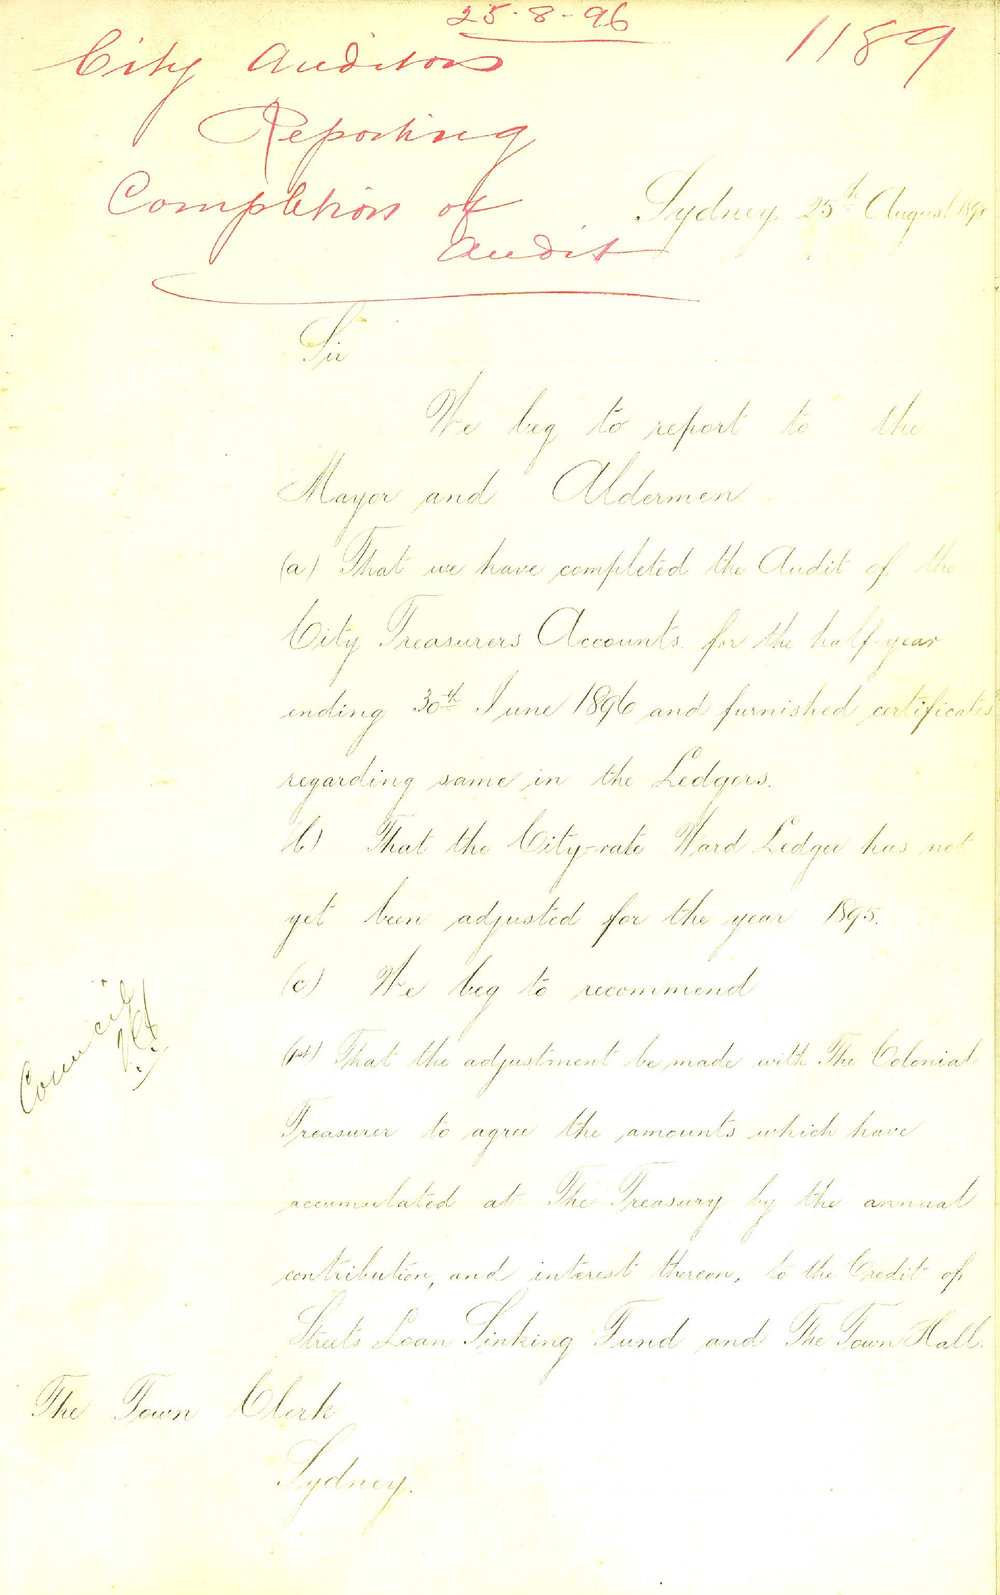 25-8-96
1189
City Auditors
Reporting
Completion of
Audit
Sydney 25th August 1896
Sir
We beg to report to the
Mayor and Aldermen
(a) That we have completed the Audit of the
City Treasurers Accounts for the half-year
ending 30th June 1896 and furnished certificates
regarding same in the Ledgers.
(b) That the City-rate Ward Ledger has not
yet been adjusted for the year 1895.
(c) We beg to recommend
That the adjustment be made with The Colonial
Treasurer to agree the amounts which have
accumulated at The Treasury by the annual
contribution, and interest thereon, to the Credit of
Streets Loan Sinking Fund and The Town Hall.
The Town Clerk
Sydney.
Council